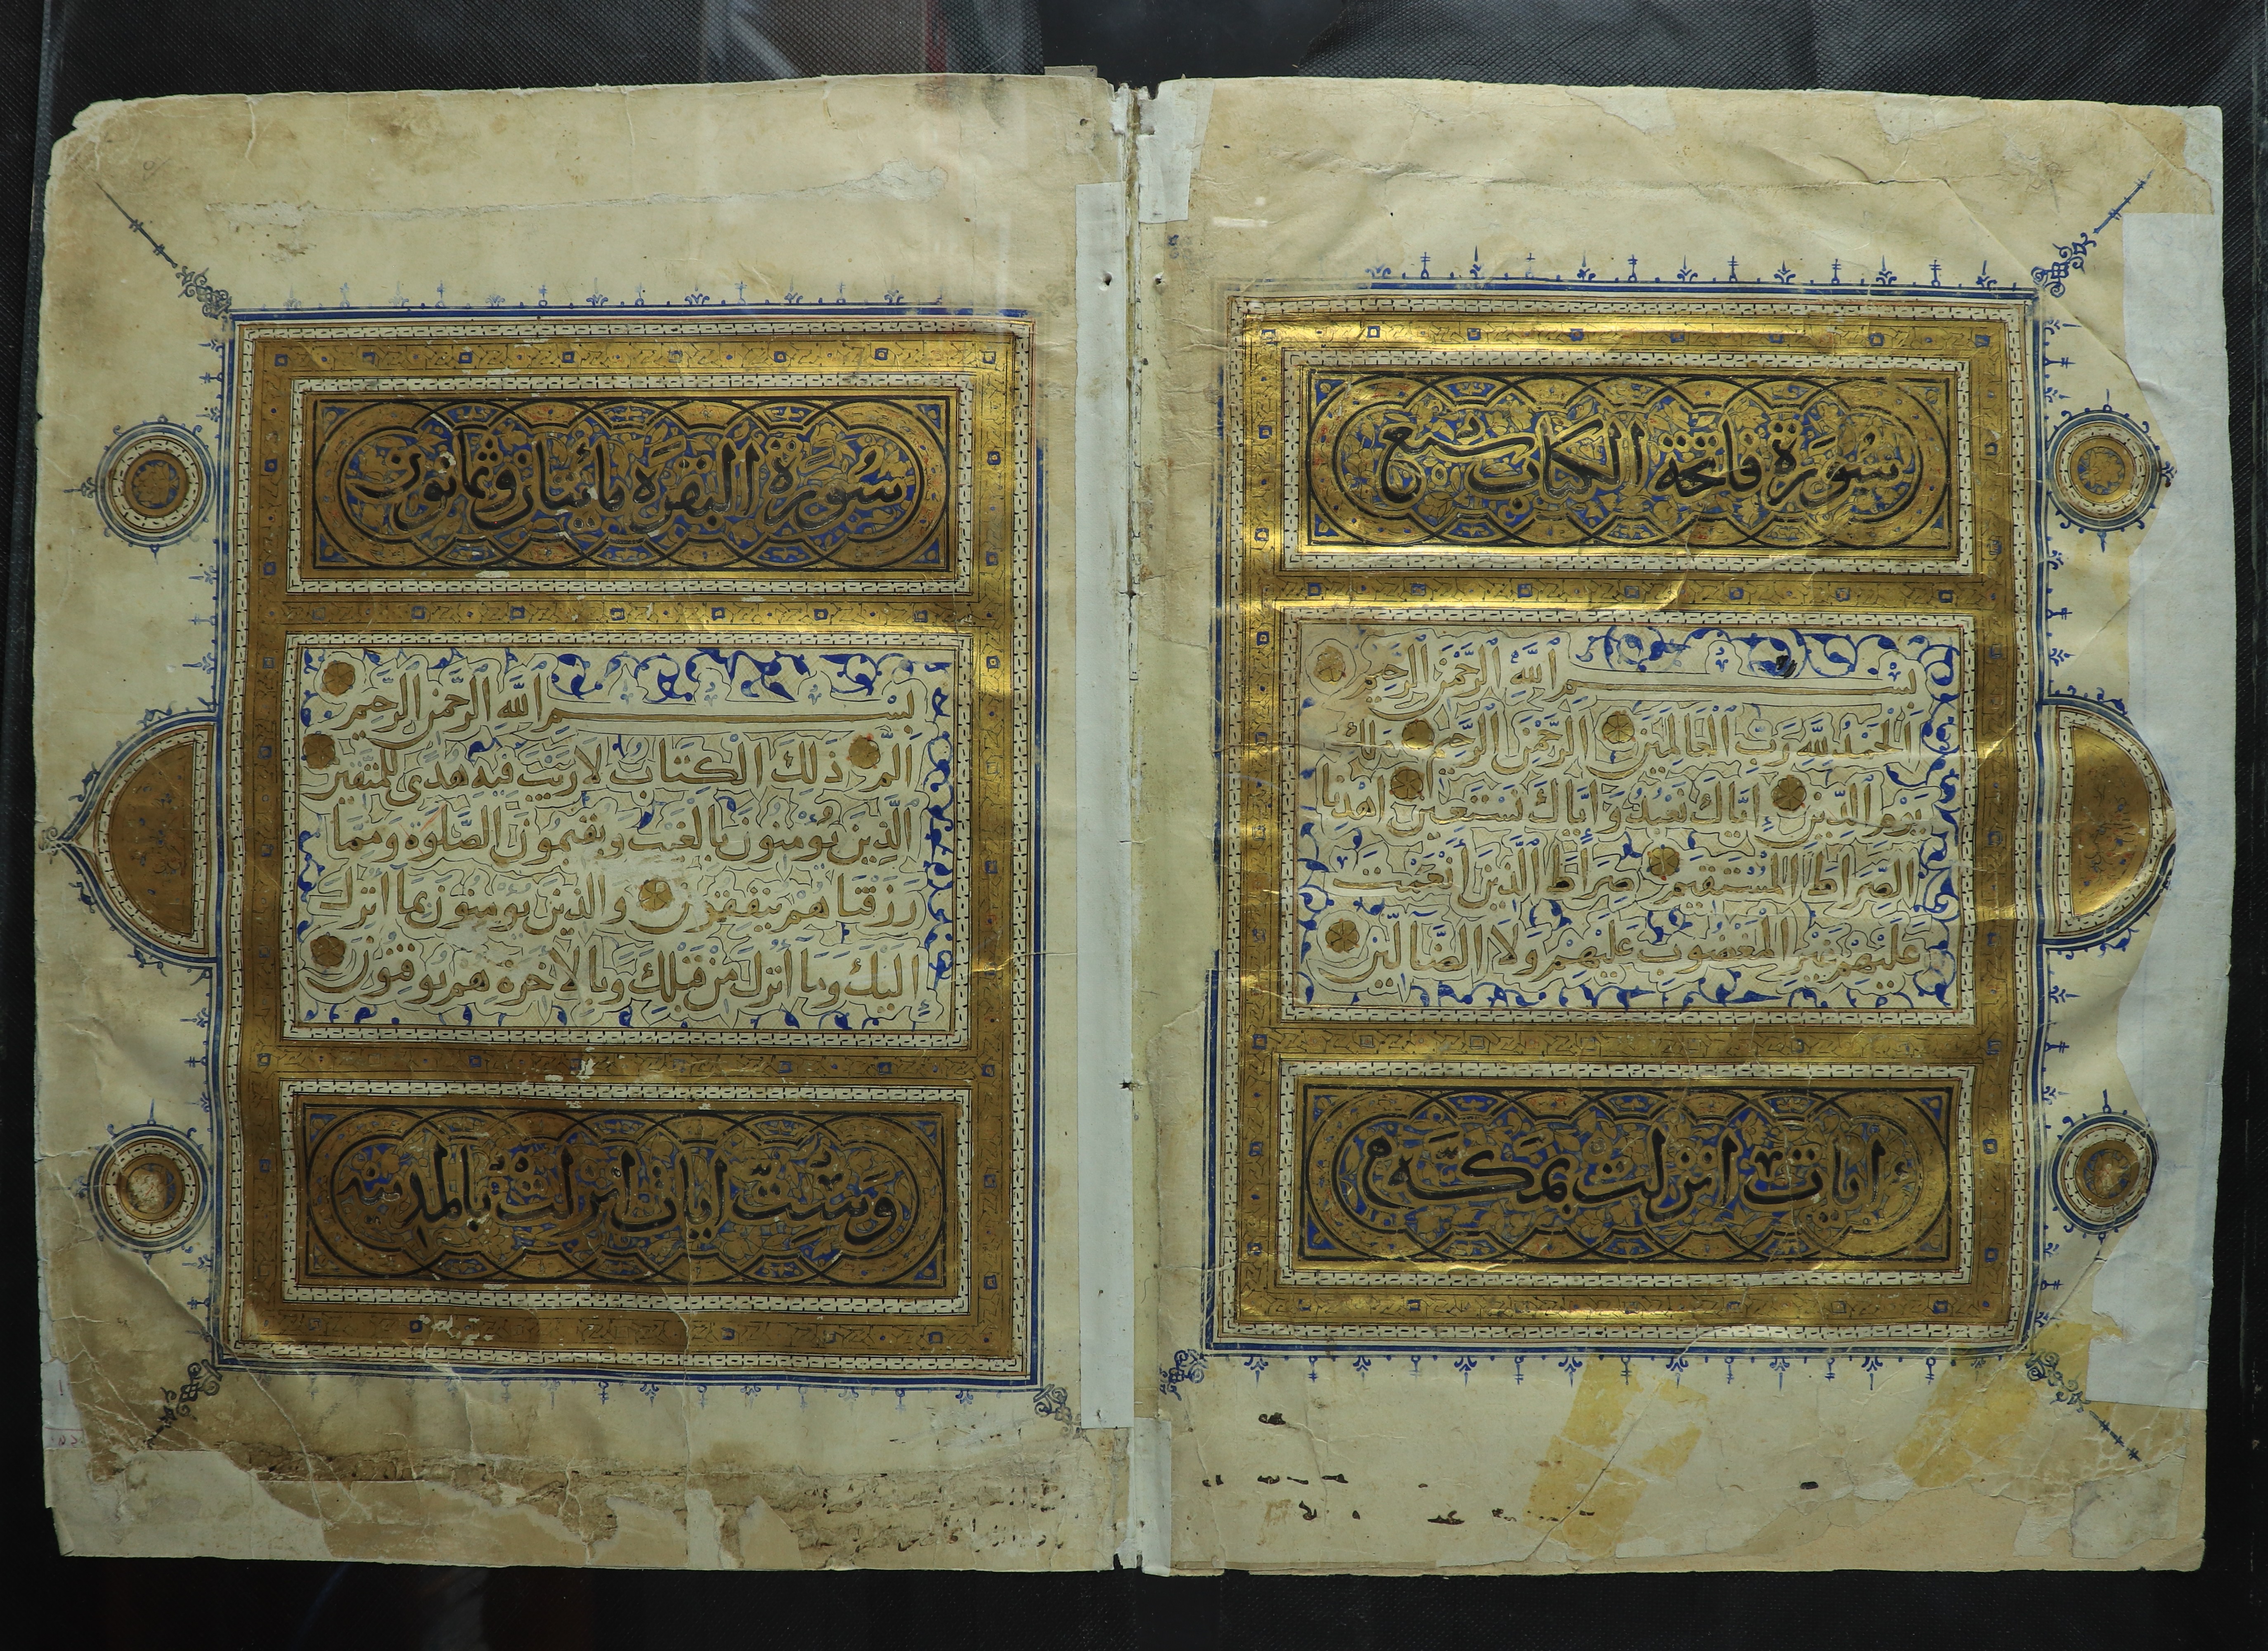 سُورَة فاتحة الكتاب سبع
بسم الله الرحمن الرحيم
اَلْحَمْدُ لِلّهِ رَبِّ الْعَالَمِينَ الرَّحْمٰنِ الرَّحِيمِ مَالِكِ
يَوْمِ الدِّينِ إِيَّاكَ نَعْبُدُ وَإِيَّاكَ نَسْتَعِينُ اهْدِنَا
الصِّرَاطَ الْمُسْتَقِيمَ صِرَاطَ الَّذِينَ أَنْعَمْتَ
عَلَيْهِمْ غَيْرِ الْمَغْضُوبِ عَلَيْهِمْ وَلَا الضَّالِّينَ
ايات انزلت بمكة
سُورَةُ البقرَة مأيتان وثمانون
بسم الله الرحمن الرحيم
الم ذَلِكَ الْكِتَابُ لَا رَيْبَ فِيهِ هُدًى لِلْمُتَّقِينَ
الَّذِينَ يُؤْمِنُونَ بِالْغَيْبِ وَيُقِيمُونَ الصَّلٰوةَ وَمِمَّا
رَزَقْنَاهُمْ يُنْفِقُونَ وَالَّذِينَ يُؤْمِنُونَ بِمَا أُنْزِلَ
إِلَيْكَ وَمَا أُنْزِلَ مِنْ قَبْلِكَ وَبِالْآخِرَةِ هُمْ يُوقِنُونَ
وَسِتّ ايات انزلت بالمدينه